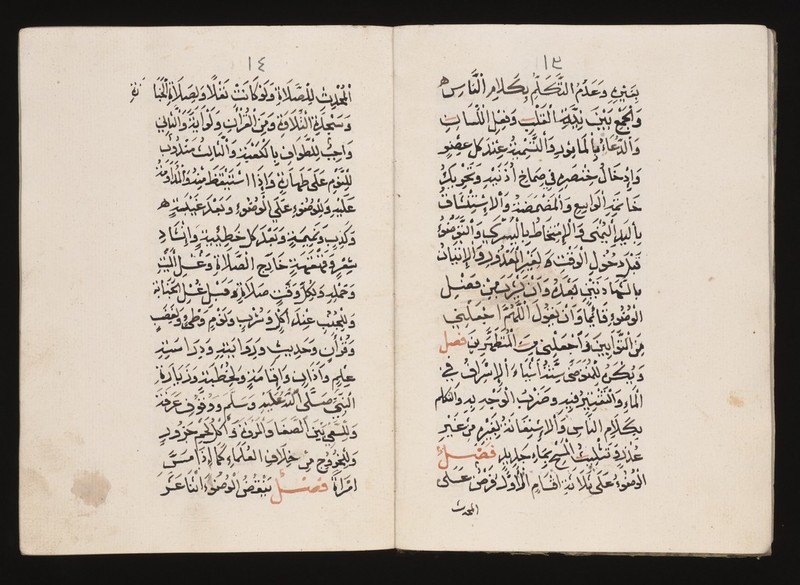 ١٣
بغيره وعدم التكلم بكلام الناس
والجمع بين نية القلب وفعل اللسان
والدعاء بالمأثور والتسمية عند كل عضو
وادخال خنصره في صماخ أذنيه وتحريك
خاتمه الواسع والمضمضة والاستنشاق
باليد اليمنى والامتخاط باليسرى والتوضؤ
قبل دخول الوقت لغير المعذور والاتيان
بالشهادتين بعده وأن يشرب من فضل
الوضوء قائما وأن يقول اللهم اجعلني
من التوابين واجعلني من المتطهرين فصل
ويكره للمتوضي ستة أشياء الاسراف في
الماء والتقتير فيه وضرب الوجه به والتكلم
بكلام الناس والاستعانة بغيره من غير
عذر وتثليث المسح بماء جديد فصل
الوضوء على ثلاثة أقسام الأول فرض على
المحدث
١٤
المحدث للصلاة ولو كانت نفلا ولصلاة الجنازة
وسجدة التلاوة ومس القرآن ولو آية والثاني
واجب للطواف بالكعبة والثالث مندوب
للنوم على طهارة واذا استيقظ منه وللمداومة
عليه وللوضوء على الوضوء وبعد غيبة
وكذب ونميمة وبعد كل خطيئة وانشاد
شعر وقهقهة خارج الصلاة وغسل الميت
وحمله ولكل وقت صلاة وقبل غسل الجنابة
وللجنب عند أكل وشرب ونوم ووطئ ولغضب
وقرآن وحديث وروايته ودراسة
علم وأذان واقامة وخطبة وزيارة
النبي صلى الله عليه وسلم ووقوف عرفة
وللسعي بين الصفا والمروة وأكل لحم جزور
وللخروج من خلاف العلماء كما اذا مس
امرأة فصل ينقض الوضوء اثنا عشر